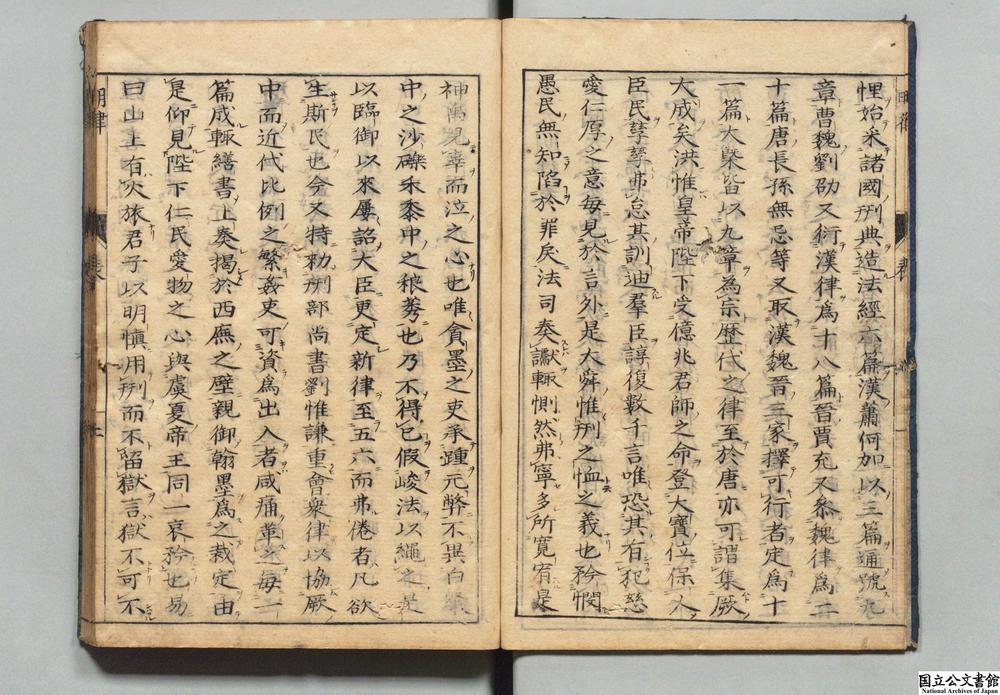 悝始采諸國刑典造法經六篇漢蕭何加以三篇通號九
章曹魏劉劭又衍漢律爲十八篇晉賈充又叅魏律爲二
十篇唐長孫無忌等又取漢魏晉三家擇可行者定爲十
二篇大槩皆以九章為宗歷代之律至於唐亦可謂集厥
大成矣洪惟皇帝陛下受億兆君師之命登大寶位保人
臣民孳孳弗怠其訓迪羣臣諄復數千言唯恐其有犯慈
愛仁厚之意每見於言外是大舜惟刑之恤之義也矜憫
愚民無知陷於罪戾法司奏讞輒惻然弗寧多所寬宥是
神禹見辜而泣之心也唯貪墨之吏承踵元弊不異白粲
中之沙礫禾黍中之稂莠也乃不得已假峻法以繩之是
以臨御以來屢詔大臣更定新律至五六而弗倦者凡欲
生斯民也今又特勑刑部尚書劉惟謙重會衆律以協厥
中而近代比例之繁姦吏可資爲出入者咸痛革之每一
篇成輒繕書上奏揭於西廡之壁親御翰墨爲之裁定由
是仰見陛下仁民愛物之心與虞夏帝王同一哀矜也易
曰山上有火旅君子以明慎用刑而不留獄言獄不可不
明律
表
国立公文書館
National Archives of Japan